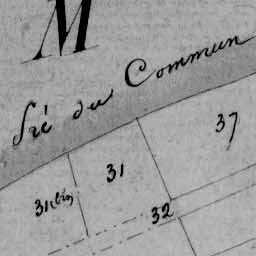 M
Pré du Commun
37
31
31 bis
32